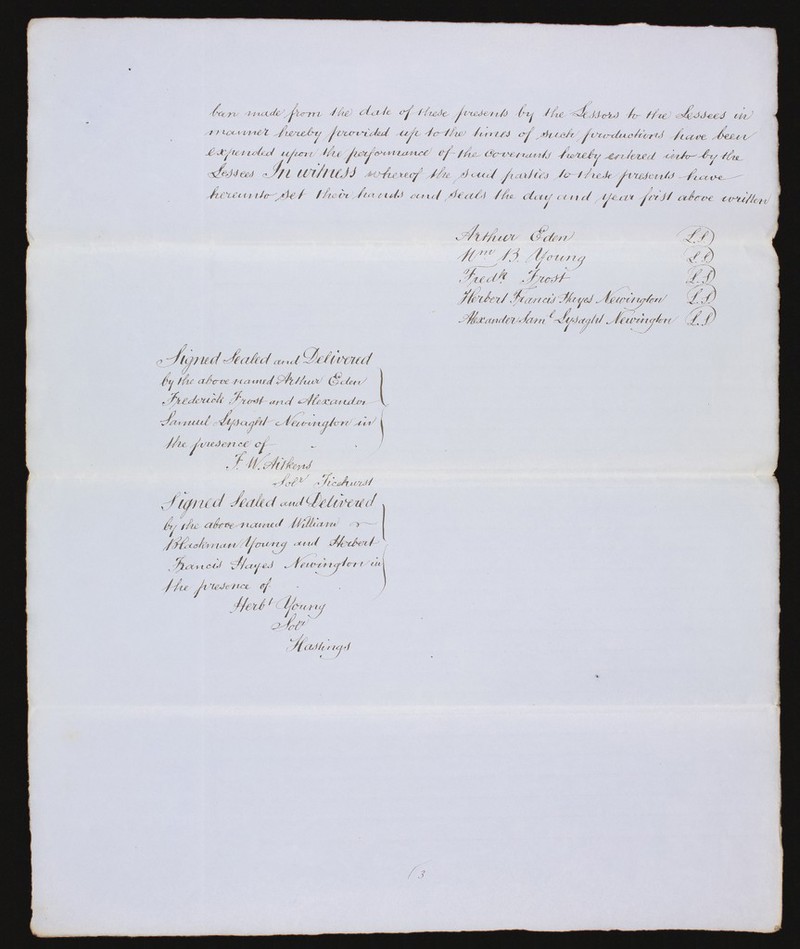 been made from the date of these presents by the Lessors to the Lessees in
manner hereby provided up to the times of such productions have been
expended upon the performance of the covenants hereby entered into by the
Lessees In witness whereof the said parties to these presents have
hereunto set their hands and seals the day and year first above written
Arthur Eden L.S
Wm B Young L.S
Fredk Frost L.S
Herbert Francis Hayes Newington L.S
Alexander Saml Lysaght Newington L.S
Signed Sealed and Delivered
by the above named Arthur Eden
Frederick Frost and Alexander
Samuel Lysaght Newington in
the presence of
F. W. Aitkens
Solr Ticehurst
Signed Sealed and Delivered
by the above named William
Blackman Young and Herbert
Francis Hayes Newington in
the presence of
Herbt Young
Solr
Hastings
(3